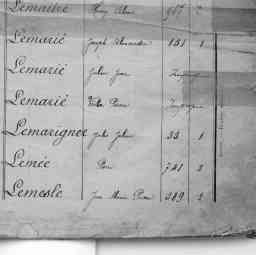 Lemaitre
Lemarié Joseph Alexandre 131 1
Lemarié Jules Jean
Lemarié Victor Pierre
Lemarignee Jules Julien 33 1
Lemée Pierre 741 3
Lemesle Jean Marie Pierre 389 2